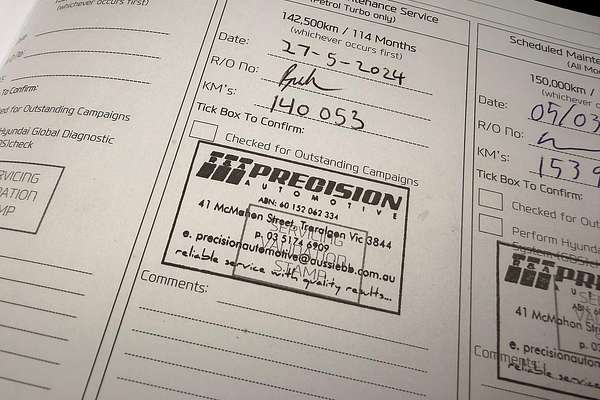 (whichever occurs first)
To Confirm:
ed for Outstanding Campaigns
Hyundai Global Diagnostic
GDS)check
RVICING
DATION
MP
Maintenance Service
(Petrol Turbo only)
142,500km / 114 Months
(whichever occurs first)
Date: 27-5-2024
R/O No:
KM's: 140 053
Tick Box To Confirm:
Checked for Outstanding Campaigns
PRECISION
AUTOMOTIVE
ABN: 60 152 062 334
41 McMahon Street, Traralgon Vic 3844
p. 03 5174 6909
e. precisionautomotive@aussiebb.com.au
reliable service with quality results...
SERVICING
VALIDATION
STAMP
Comments:
Scheduled Mainte
(All Mo
150,000km /
(whichever o
Date: 05/03
R/O No:
KM's: 1539
Tick Box To Confirm:
Checked for Out
Perform Hyunda
System (GDS)ch
PRE
41 McMahon Street,
e. precisionautom
Comments:
reliable service